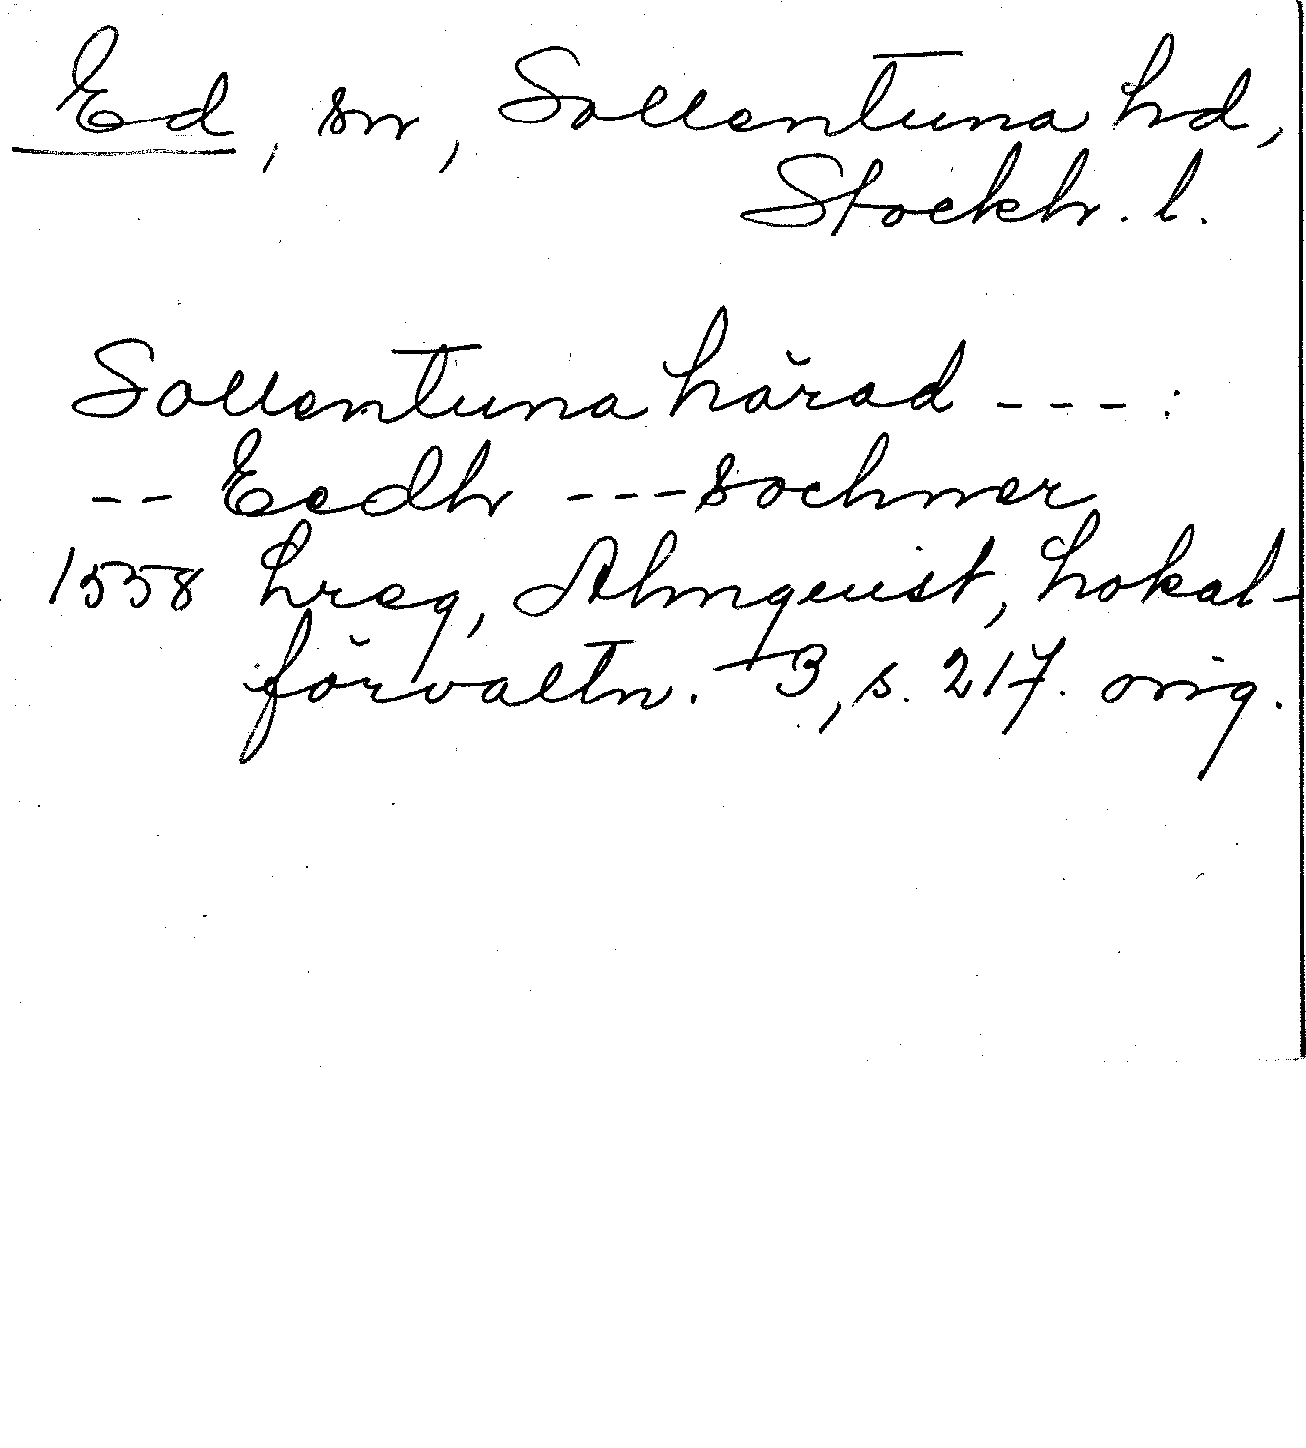 Ed, sn, Sollentuna hd,
Stockh. l.
Sollentuna härad - - - :
- - Eedh - - - sochner
1558 hreg, Almquist, Lokal-
förvaltn. 3, s. 217. orig.